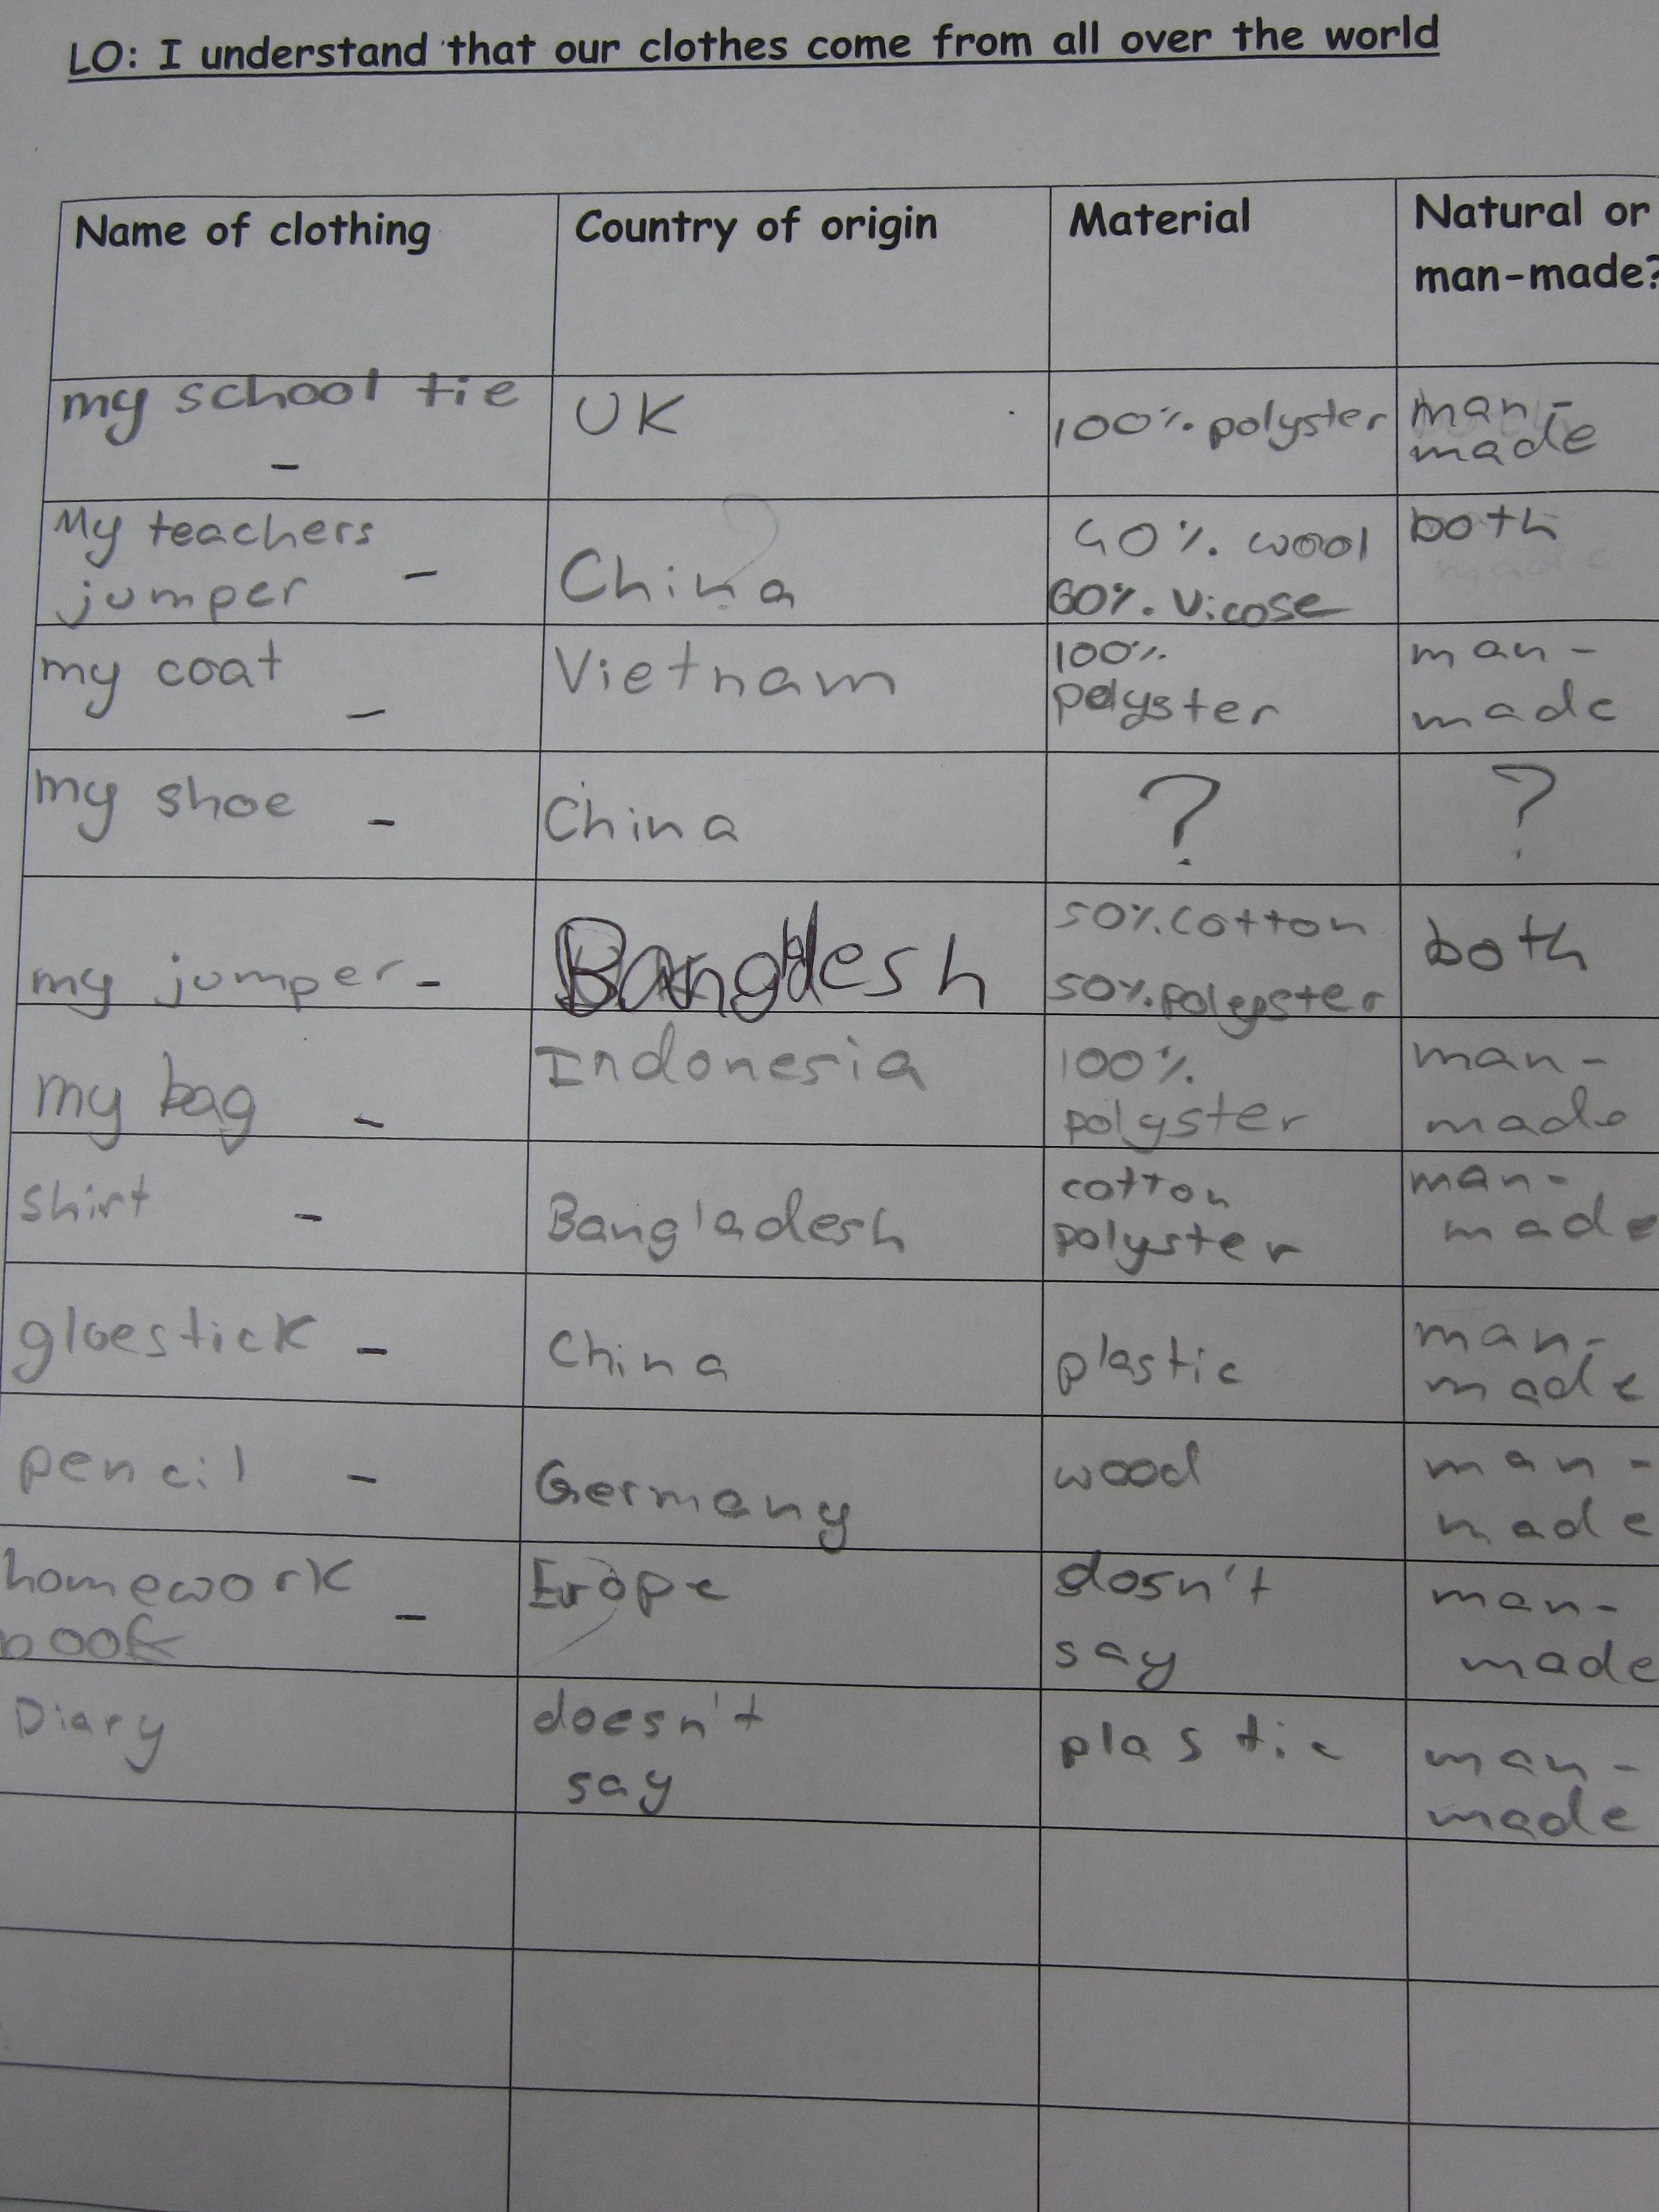 LO: I understand that our clothes come from all over the world
Name of clothing
Country of origin
Material
Natural or
man-made?
my school tie
-
UK
100% polyster
man-
made
My teachers
jumper -
China
40% wool
60% Vicose
both
my coat
-
Vietnam
100%
polyster
man-
made
my shoe -
China
?
?
my jumper -
50% cotton
50% polyster
both
my bag -
Indonesia
100%
polyster
man-
made
shirt -
Bangladesh
cotton
polyster
man-
made
gloestick -
China
plastic
man-
made
pencil -
Germany
wood
man-
made
homework
book -
Erope
dosn't
say
man-
made
Diary
doesn't
say
plastic
man-
made